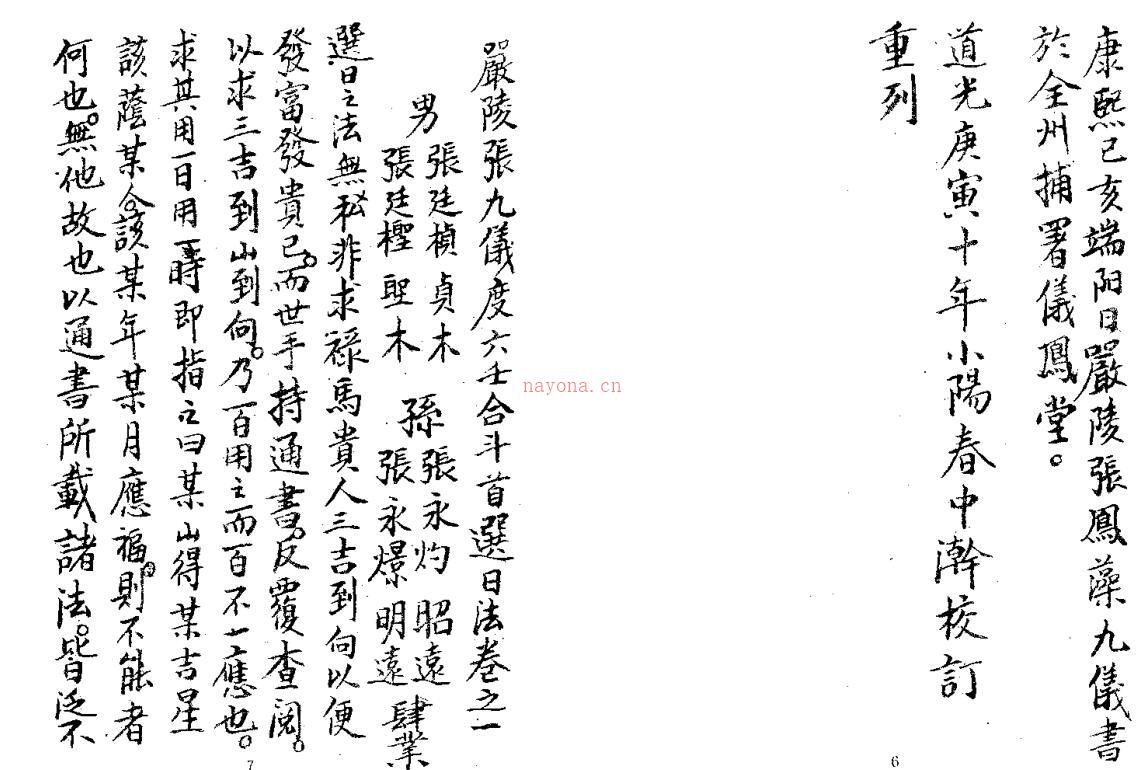 康熙己亥端阳日嚴陵張鳳藻九儀書
於全州捕署儀鳳堂。
道光庚寅十年小陽春中澣校訂
重列
6
嚴陵張九儀度六壬合斗首選日法卷之一
男 張廷楨貞木 孫張永灼昭遠
張廷檉聖木 張永爆明遠肆業
選日之法無私非求祿馬貴人三吉到向以便
發富發貴已。而世手持通書。反覆查閲。
以求三吉到山到向。乃百用之而百不一應也。
求其用一日用一時即指之曰某山得某吉星
該蔭某命。該某年某月應福。則不能者
何也。無他故也以通書所載諸法。皆泛不
7
nayona.cn